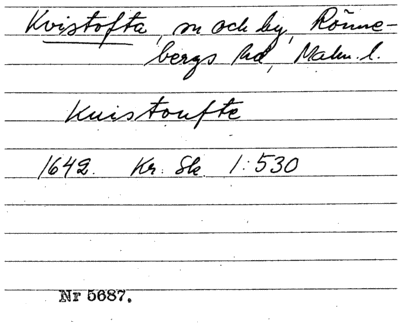 Kvistofta, sn och by, Rönne-
bergs hd, Malm. l.
Kuistoufte
1642. Kr. Sk. 1:530
Nr 5687.